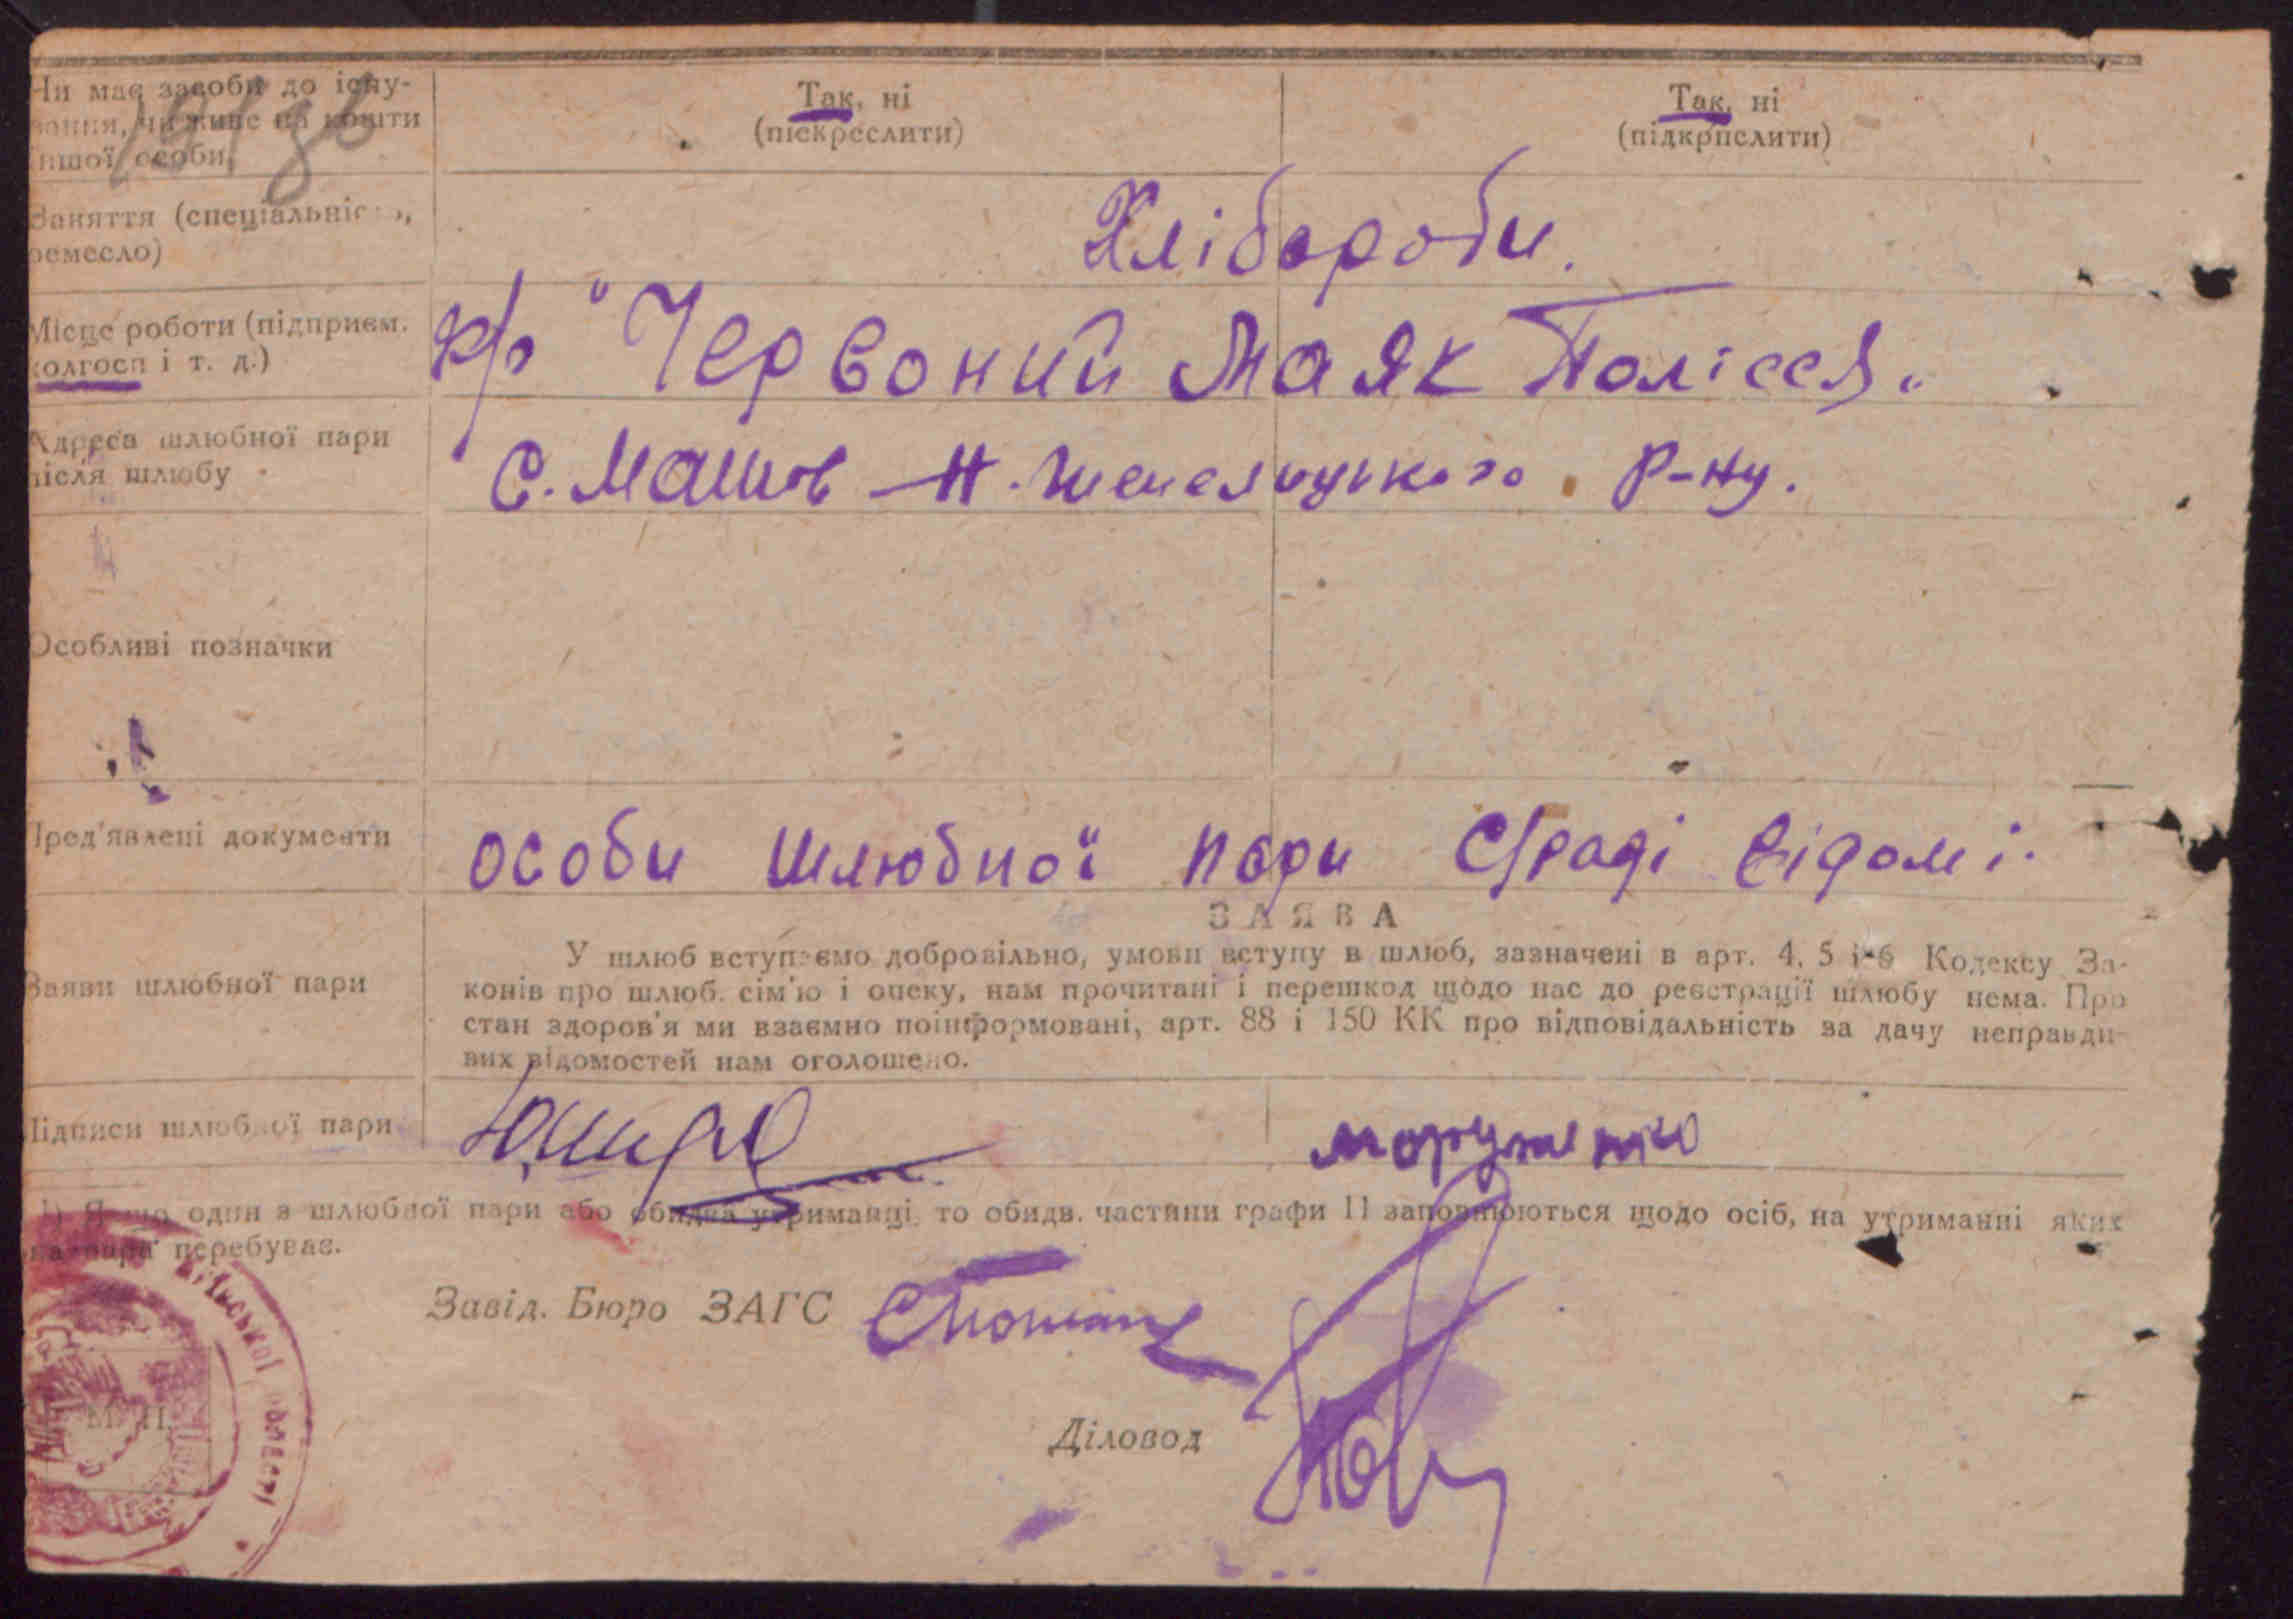 Чи має засоби до існу-
вання, чи живе на кошти
іншої особи
Так, ні
(піскреслити)
Так, ні
(підкрпслити)
Заняття (спеціальність,
ремесло)
Хлібороби.
Місце роботи (підприєм.
колгосп і т. д.)
к/г "Червоний Маяк Полісся"
Адреса шлюбної пари
після шлюбу
С. Машов Н. Шепелицького Р-ну.
Особливі позначки
Пред'явлені документи
особи шлюбної пари С/раді відомі.
ЗАЯВА
Заяви шлюбної пари
У шлюб вступаємо добровільно, умови вступу в шлюб, зазначені в арт. 4, 5 і 6 Кодексу За-
конів про шлюб. сім'ю і опеку, нам прочитані і перешкод щодо нас до реєстрації шлюбу нема. Про
стан здоров'я ми взаємно поінформовані, арт. 88 і 150 КК про відповідальність за дачу неправди-
вих відомостей нам оголошено.
Підписи шлюбної пари
1) Якщо один з шлюбної пари або обидва утриманці, то обидв. частини графи 11 заповнюються щодо осіб, на утриманні яких
перебуває.
Київської області
Завід. Бюро ЗАГС
М. П.
Діловод